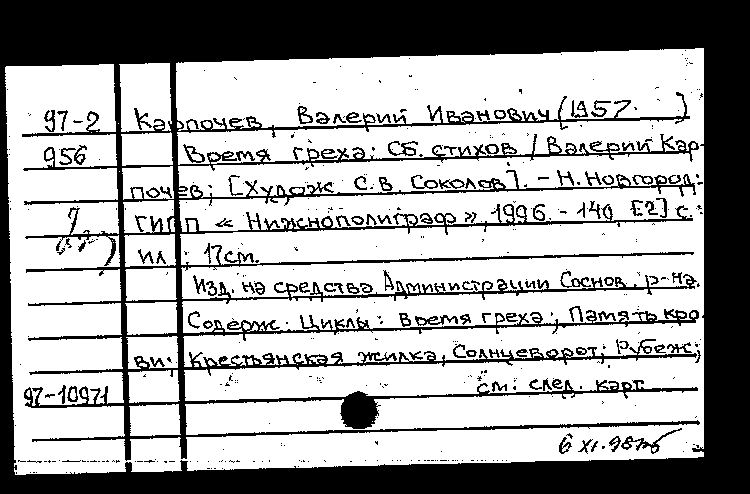 97-2 Карпочев, Валерий Иванович (1957- )
956 Время греха: Сб. стихов / Валерий Кар-
почев; [Худож. С.В. Соколов]. - Н.Новгород:
ГИПП « Нижполиграф », 1996. - 140, [2] с.:
ил ; 17см.
Изд. на средства Администрации Соснов. р-на.
Содерж. Циклы: Время греха; Память кро-
ви; Крестьянская жилка; Солнцеворот; Рубеж;
97-10971 см. след. карт
6 XI.98